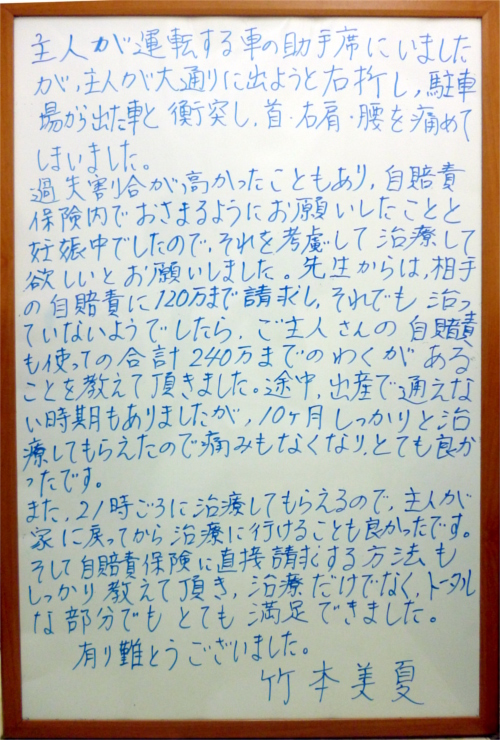 主人が運転する車の助手席にいました
が、主人が大通りに出ようと右折し、駐車
場から出た車と衝突し、首・右肩・腰を痛めて
しまいました。
過失割合が高かったこともあり、自賠責
保険内でおさまるようにお願いしたことと
妊娠中でしたので、それを考慮して治療して
欲しいとお願いしました。先生からは、相手
の自賠責に120万まで請求し、それでも治っ
ていないようでしたら、ご主人さんの自賠責
も使っての合計240万までのわくがある
ことを教えて頂きました。途中、出産で通えな
い時期もありましたが、10ヶ月しっかりと治
療してもらえたので痛みもなくなり、とても良か
ったです。
また、21時ごろに治療してもらえるので、主人が
家に戻ってから治療に行けることも良かったです。
そして自賠責保険に直接請求する方法も
しっかり教えて頂き、治療だけでなく、トータル
な部分でもとても満足できました。
有り難とうございました。
竹本美夏